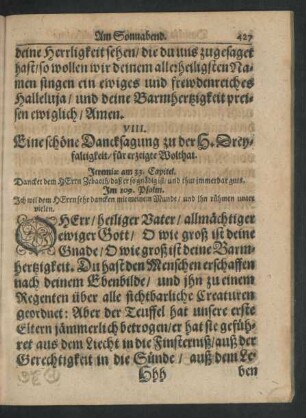 Am Sonnabend. 427
deine Herrligkeit sehen/ die du uns zugesaget
hast/ so wollen wir deinem allerheiligsten Na-
men singen ein ewiges und frewdenreiches
Hallelüja/ und deine Barmhertzigkeit prei-
sen ewiglich/ Amen.
VIII.
Eine schöne Dancksagung zu der H. Drey-
faltigkeit/ für erzeigte Wolthat.
Jeremiæ am 33. Capitel.
Dancket dem HErrn Zebaoth/ daß er so gnädig ist/ und thut immerdar guts.
Im 109. Psalm.
Ich wil dem HErrn sehr dancken mit meinem Munde/ und ihn rühmen unter
vielen.
O HErr/ heiliger Vater/ allmächtiger
ewiger Gott/ O wie groß ist deine
Gnade/ O wie groß ist deine Barm-
hertzigkeit. Du hast den Menschen erschaffen
nach deinem Ebenbilde/ und ihn zu einem
Regenten über alle sichtbarliche Creaturen
geordnet: Aber der Teuffel hat unsere erste
Eltern jämmerlich betrogen/ er hat sie gefüh-
ret aus dem Liecht in die Finsternuß/ auß der
Gerechtigkeit in die Sünde/ auß dem Le-
Hhh ben